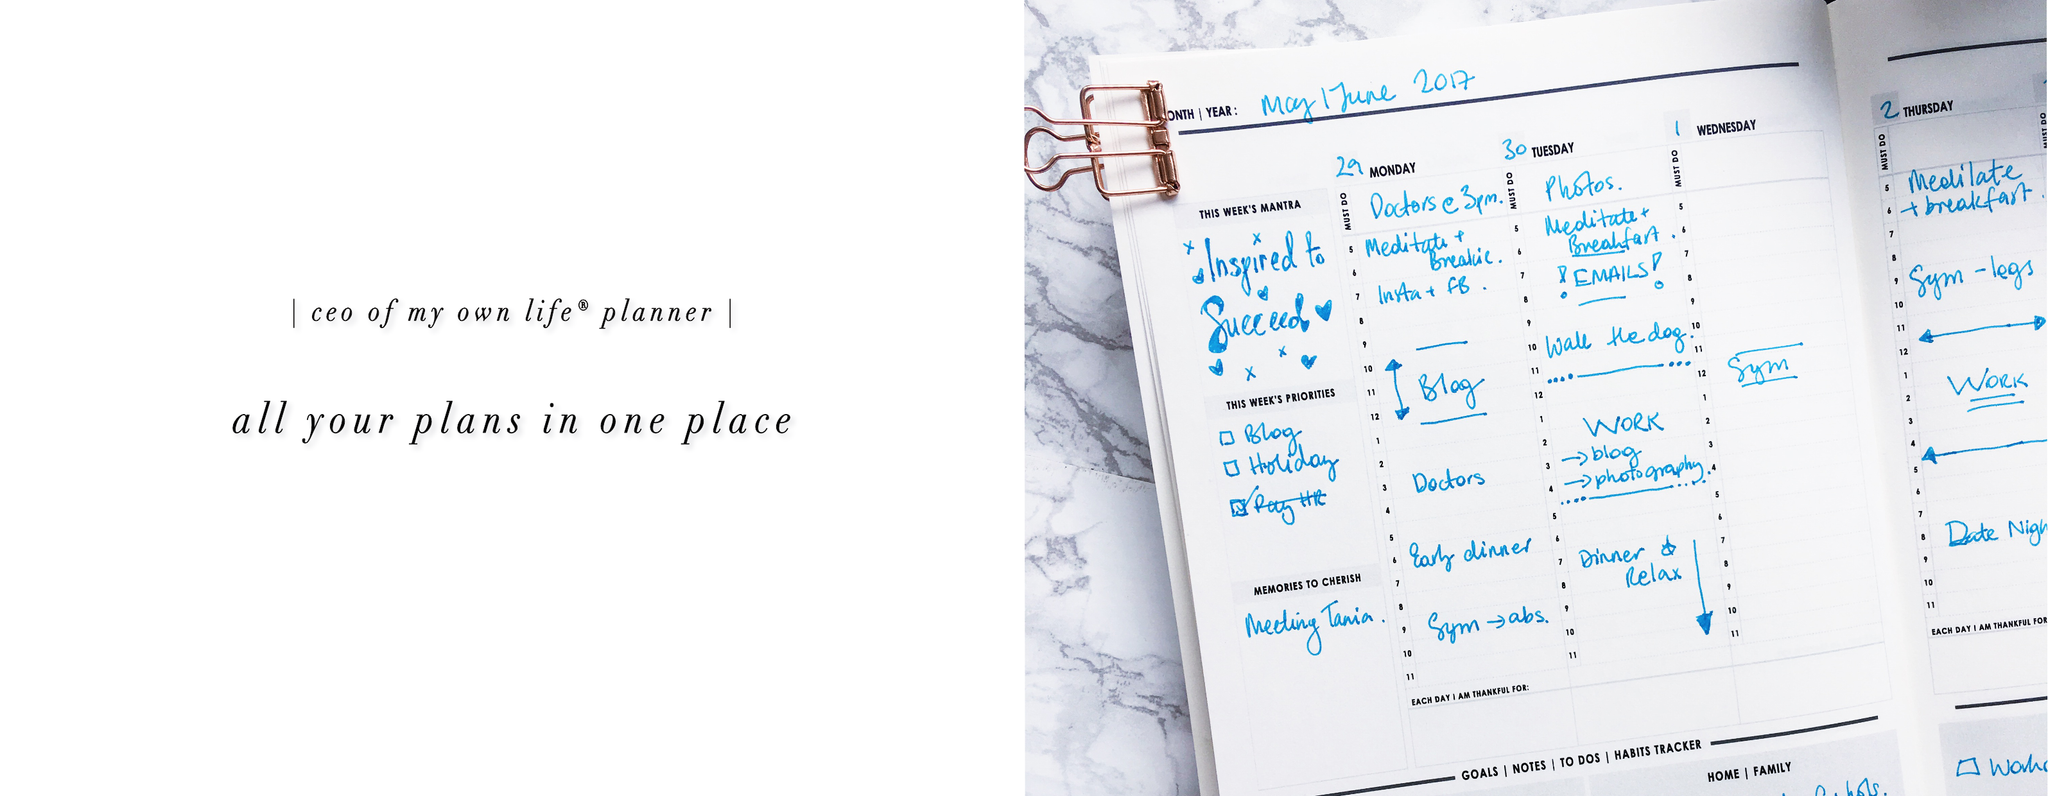 | ceo of my own life® planner |
all your plans in one place
ONTH | YEAR: May | June 2017
THIS WEEK'S MANTRA
x x
Inspired to
Succeed
x x
THIS WEEK'S PRIORITIES
Blog
Holiday
Pay HR
MEMORIES TO CHERISH
Meeting Tania.
29 MONDAY
MUST DO
Doctors @ 3pm.
5
6
7
8
9
10
11
12
1
2
3
4
5
6
7
8
9
10
11
Meditate +
Breakie.
Insta + FB.
Blog
Doctors
Early dinner
Gym → abs.
EACH DAY I AM THANKFUL FOR:
30 TUESDAY
MUST DO
Photos.
5
6
7
8
9
10
11
12
1
2
3
4
5
6
7
8
9
10
11
Meditate +
Breakfast.
! EMAILS!
Walk the dog.
WORK
→ blog
→ photography.
Dinner &
Relax
1 WEDNESDAY
MUST DO
5
6
7
8
9
10
11
12
1
2
3
4
5
6
7
8
9
10
11
Gym
2 THURSDAY
MUST DO
5
6
7
8
9
10
11
12
1
2
3
4
5
6
7
8
9
10
11
Meditate
+ breakfast.
Gym - legs
WORK
Date Nigh
EACH DAY I AM THANKFUL FOR
MUST DO
GOALS | NOTES | TO DOS | HABITS TRACKER
HOME | FAMILY